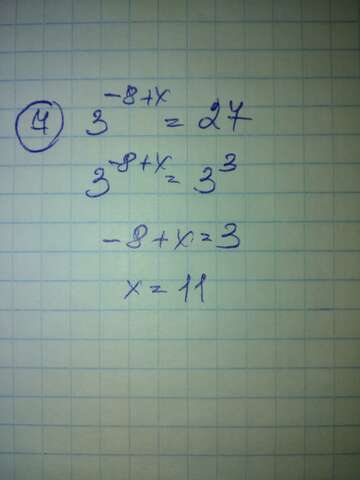 7 3^{-8+x} = 27
3^{-8+x} = 3^3
-8+x=3
x=11